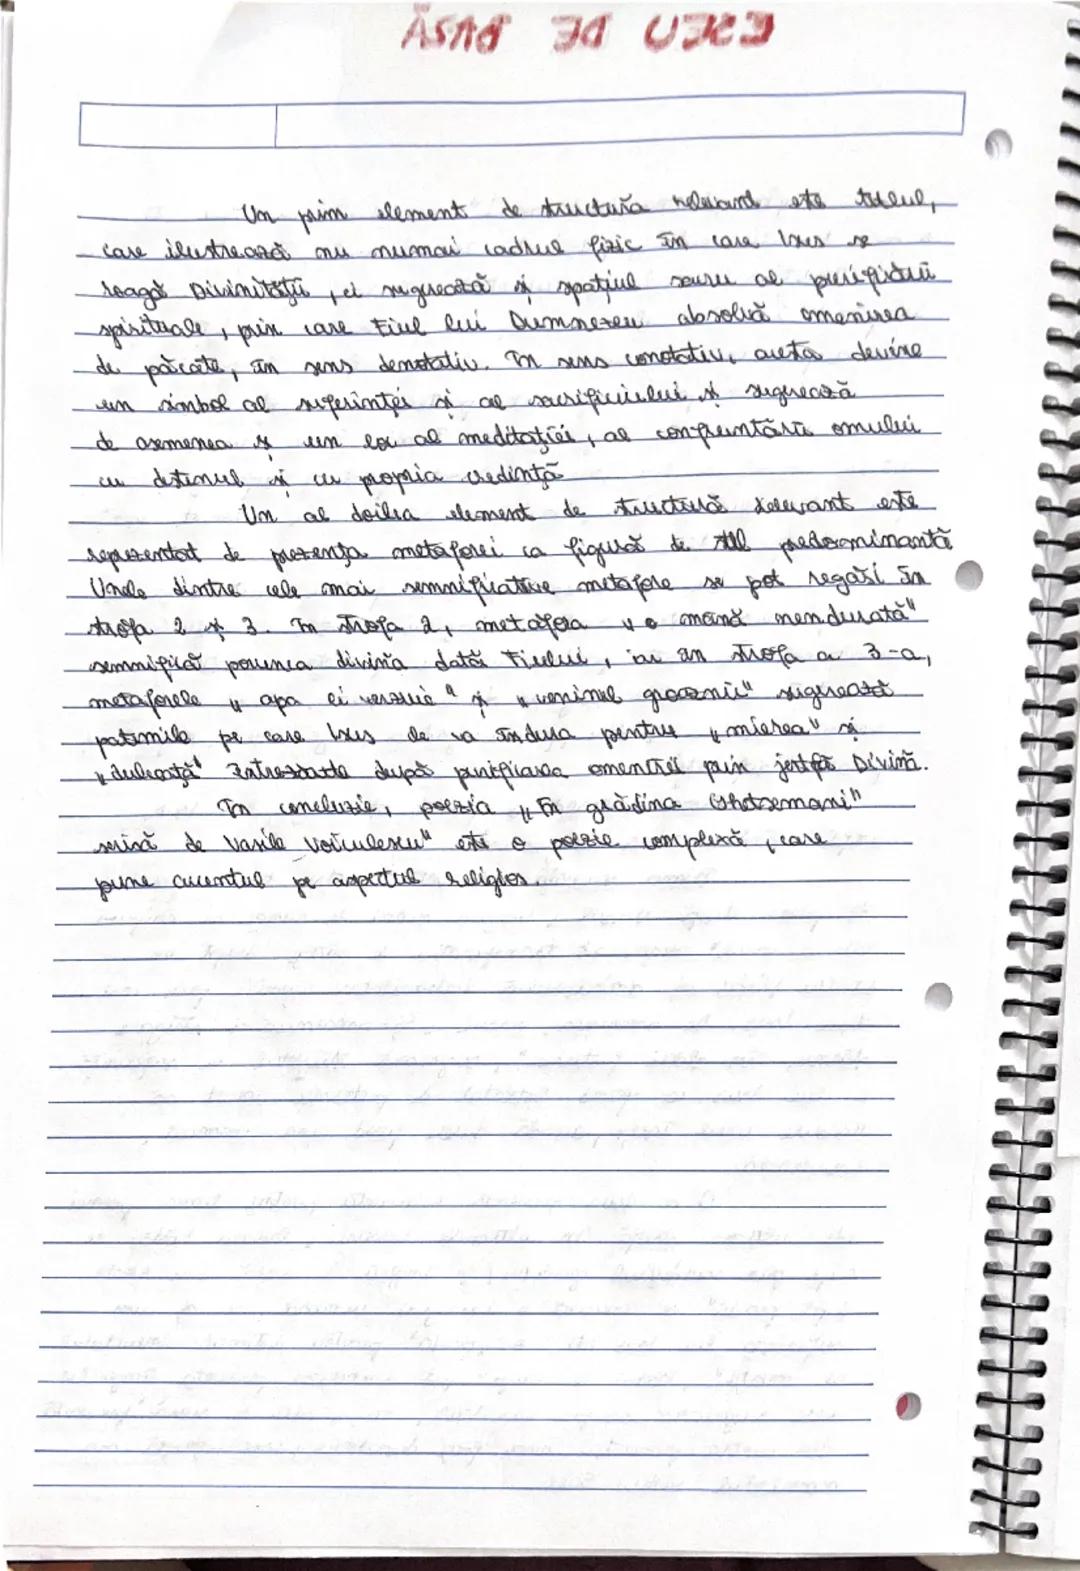 Un prim element de structură relevant este titlul,
care ilustrează nu numai cadrul fizic în care Isus se
roagă Divinității, ci sugerează și spațiul sacru al purificării
spirituale, prin care Fiul lui Dumnezeu absolvă omenirea
de păcate, în sens denotativ. În sens conotativ, acesta devine
un simbol al suferinței și al sacrificiului și sugerează
de asemenea și un loc al meditației, al confruntării omului
cu destinul și cu propria credință
Un al doilea element de structură relevant este
reprezentat de prezența metaforei ca figură de stil predominantă
Unele dintre cele mai semnificative metafore se pot regăsi în
strofa 2 și 3. În strofa 2, metafora „o mână nendurată"
semnifică porunca divină dată Fiului, iar în strofa a 3-a,
metaforele „apa ei verzuie" și „veninul groaznic" sugerează
patimile pe care Isus le va îndura pentru „mierea" și
„dulceața" întrezărite după purificarea omenirii prin jertfă Divină.
În concluzie, poezia „În grădina Ghetsemani"
scrisă de Vasile Voiculescu" este o poezie complexă, care
pune accentul pe aspectul religios.